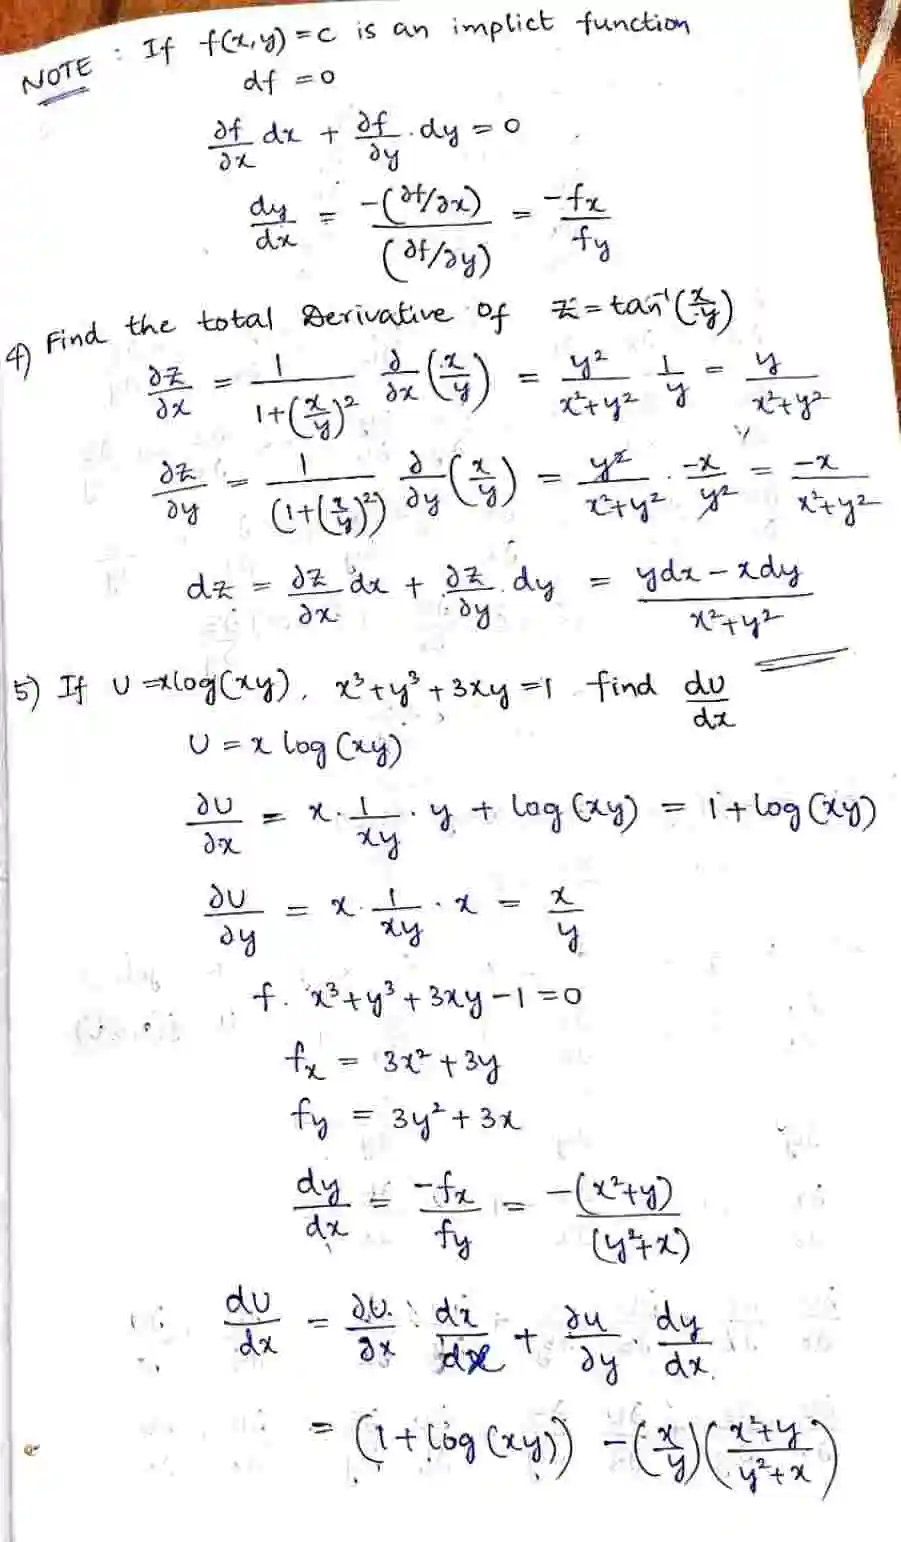 NOTE : If f(x,y) = c is an implict function
df = 0
∂f/∂x dx + ∂f/∂y . dy = 0
dy/dx = -(∂f/∂x)/(∂f/∂y) = -fx/fy
4) Find the total Derivative of z = tan⁻¹(x/y)
∂z/∂x = 1/(1+(x/y)²) ∂/∂x (x/y) = y²/(x²+y²) 1/y = y/(x²+y²)
∂z/∂y = 1/(1+(x/y)²) ∂/∂y (x/y) = y²/(x²+y²) . -x/y² = -x/(x²+y²)
dz = ∂z/∂x dx + ∂z/∂y . dy = (ydx - xdy)/(x²+y²)
5) If U = xlog(xy), x³+y³+3xy=1 find dU/dx
U = x log(xy)
∂U/∂x = x . 1/xy . y + log(xy) = 1+log(xy)
∂U/∂y = x . 1/xy . x = x/y
f. x³+y³+3xy-1=0
fx = 3x²+3y
fy = 3y²+3x
dy/dx = -fx/fy = -(x²+y)/(y²+x)
∴ dU/dx = ∂U/∂x . dx/dx + ∂u/∂y . dy/dx
= (1+log(xy)) -(x/y)((x²+y)/(y²+x))